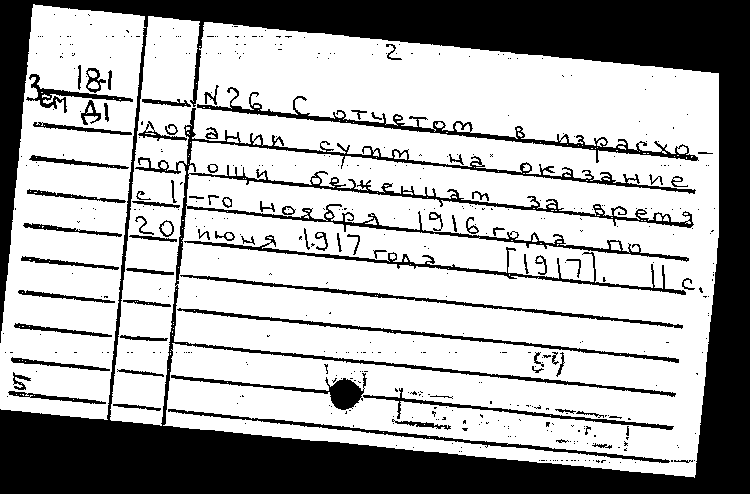 2
18-1
Зем Д1
... N26. С отчетом в израсхо-
довании сумм на оказание
помощи беженцам за время
с 1-го ноября 1916 года по
20 июня 1917 года. [1917]. 11 с.
54
5